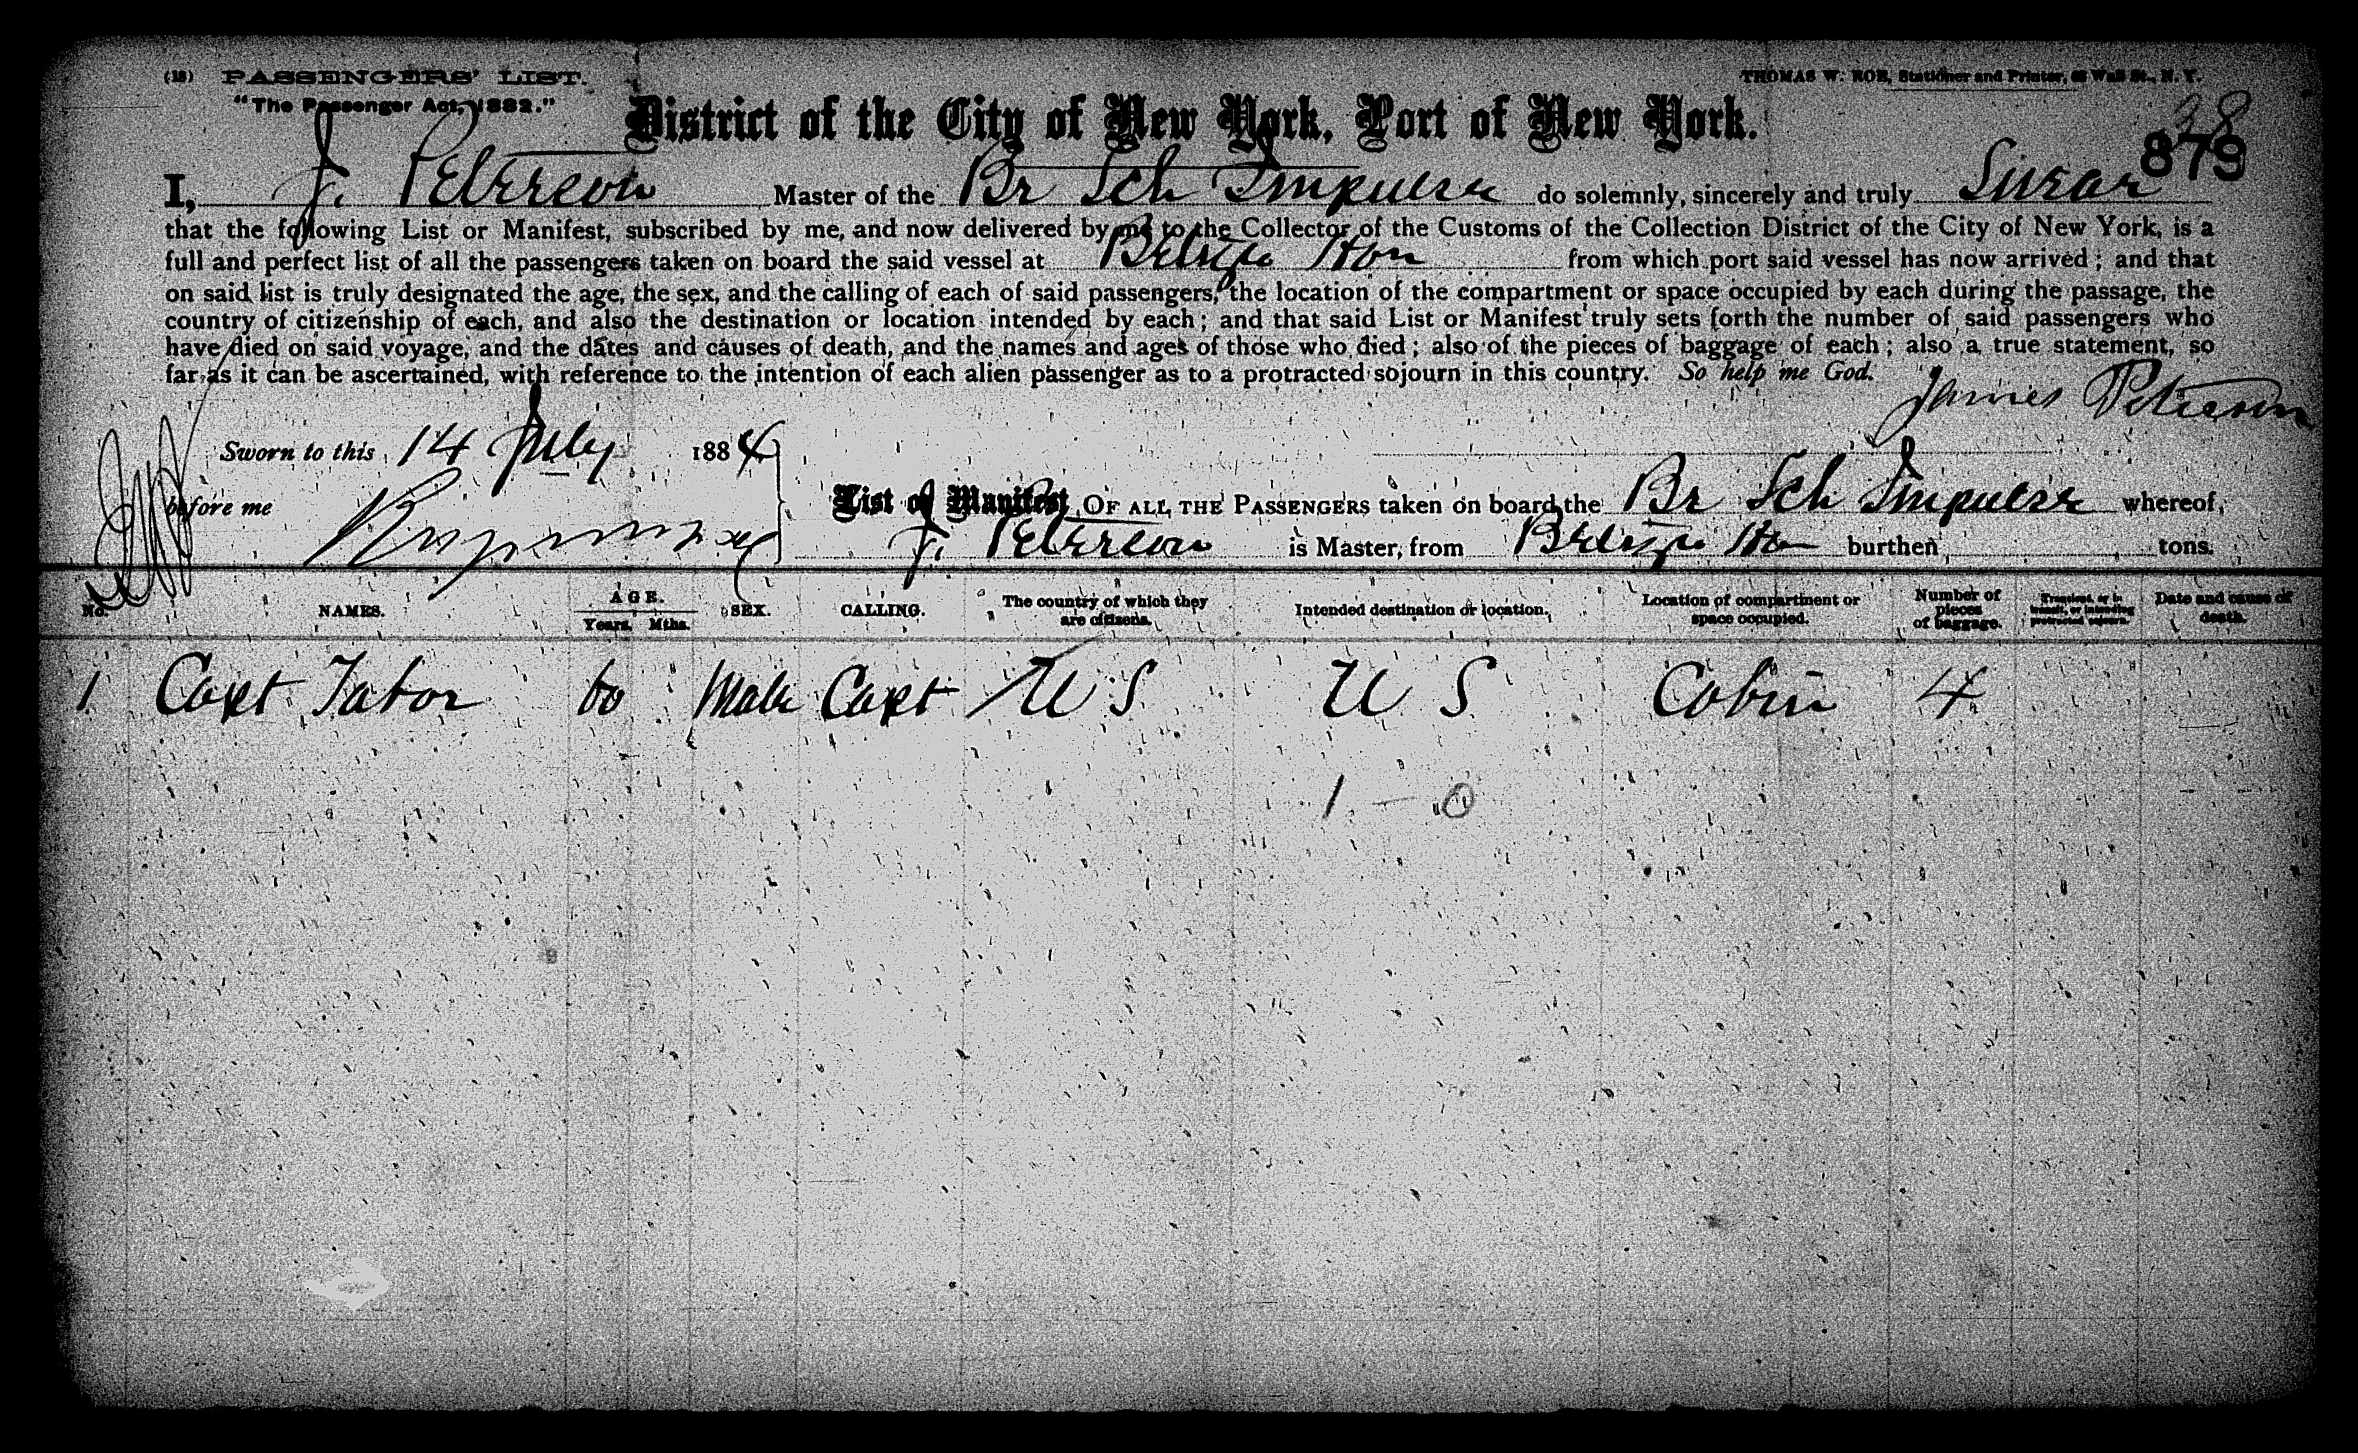 (18) PASSENGERS' LIST.
THOMAS W. ROE, Stationer and Printer, Wall St., N. Y.
"The Passenger Act, 1882."
38
District of the City of New York, Port of New York.
879
I, J. Peterson Master of the Br Sch Impulse do solemnly, sincerely and truly Swear
that the following List or Manifest, subscribed by me, and now delivered by me to the Collector of the Customs of the Collection District of the City of New York, is a
full and perfect list of all the passengers taken on board the said vessel at Belize Hon from which port said vessel has now arrived; and that
on said list is truly designated the age, the sex, and the calling of each of said passengers, the location of the compartment or space occupied by each during the passage, the
country of citizenship of each, and also the destination or location intended by each; and that said List or Manifest truly sets forth the number of said passengers who
have died on said voyage, and the dates and causes of death, and the names and ages of those who died; also of the pieces of baggage of each; also a true statement, so
far as it can be ascertained, with reference to the intention of each alien passenger as to a protracted sojourn in this country. So help me God.
James Peterson
Sworn to this 14 July 1884
before me
List or Manifest OF ALL THE PASSENGERS taken on board the Br Sch Impulse whereof
J. Peterson is Master, from Belize Hon burthen tons.
No. NAMES. AGE. Years. Mths. SEX. CALLING. The country of which they are citizens. Intended destination or location. Location of compartment or space occupied. Number of pieces of baggage. Transient, or in transit, or intending protracted sojourn. Date and cause of death.
1 Capt Tabor 60 Male Capt U S U S Cabin 4
1 - 0